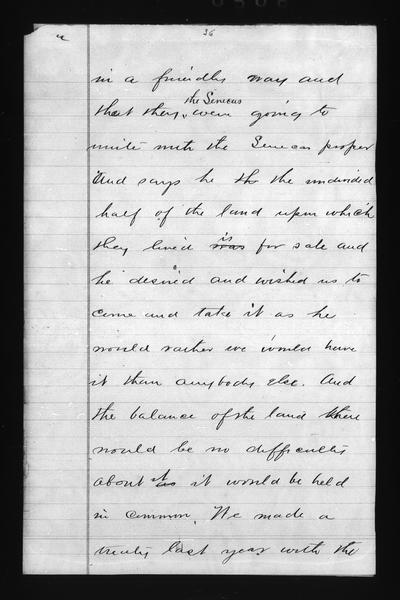 36
in a friendly way and
the Senecas
that they, were going to
unite with the Senecas proper
And says he tho the undivided
half of the land upon which
is
they lived was for sale and
he desired and wished us to
come and take it as he
would rather we would have
it than anybody else. And
the balance of the land there
would be no difficulty
about it as it would be held
in common. We made a
treaty last year with the